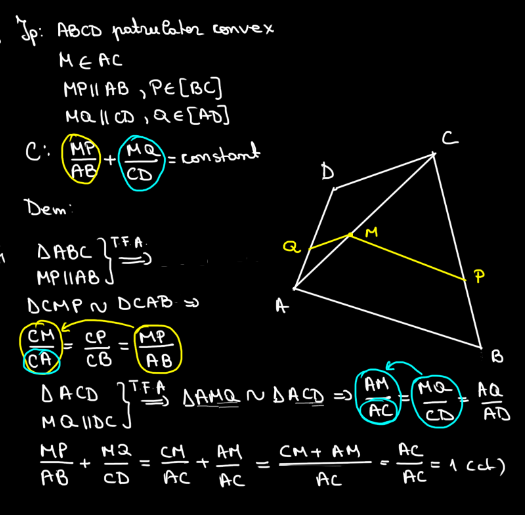 Ip: ABCD patrulater convex
M ∈ AC
MP ∥ AB, P ∈ [BC]
MQ ∥ CD, Q ∈ [AD]
C: MP/AB + MQ/CD = constant
Dem:
ΔABC
MP ∥ AB } TFA ⟹
ΔCMP ~ ΔCAB ⇒
CM/CA = CP/CB = MP/AB
ΔACD
MQ ∥ DC } TFA ⟹ ΔAMQ ~ ΔACD ⇒ AM/AC = MQ/CD = AQ/AD
MP/AB + MQ/CD = CM/AC + AM/AC = CM + AM/AC = AC/AC = 1 (ct)
C
D
Q
M
P
A
B